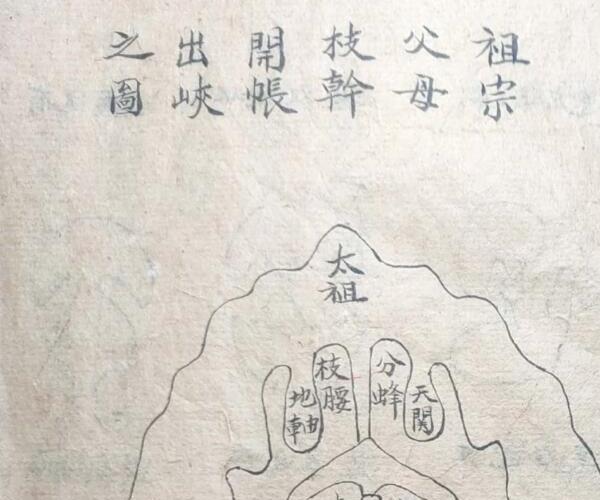 祖宗
父母
枝幹
開帳
出峽
之圖
太祖
天関
分蜂
枝腰
地軸